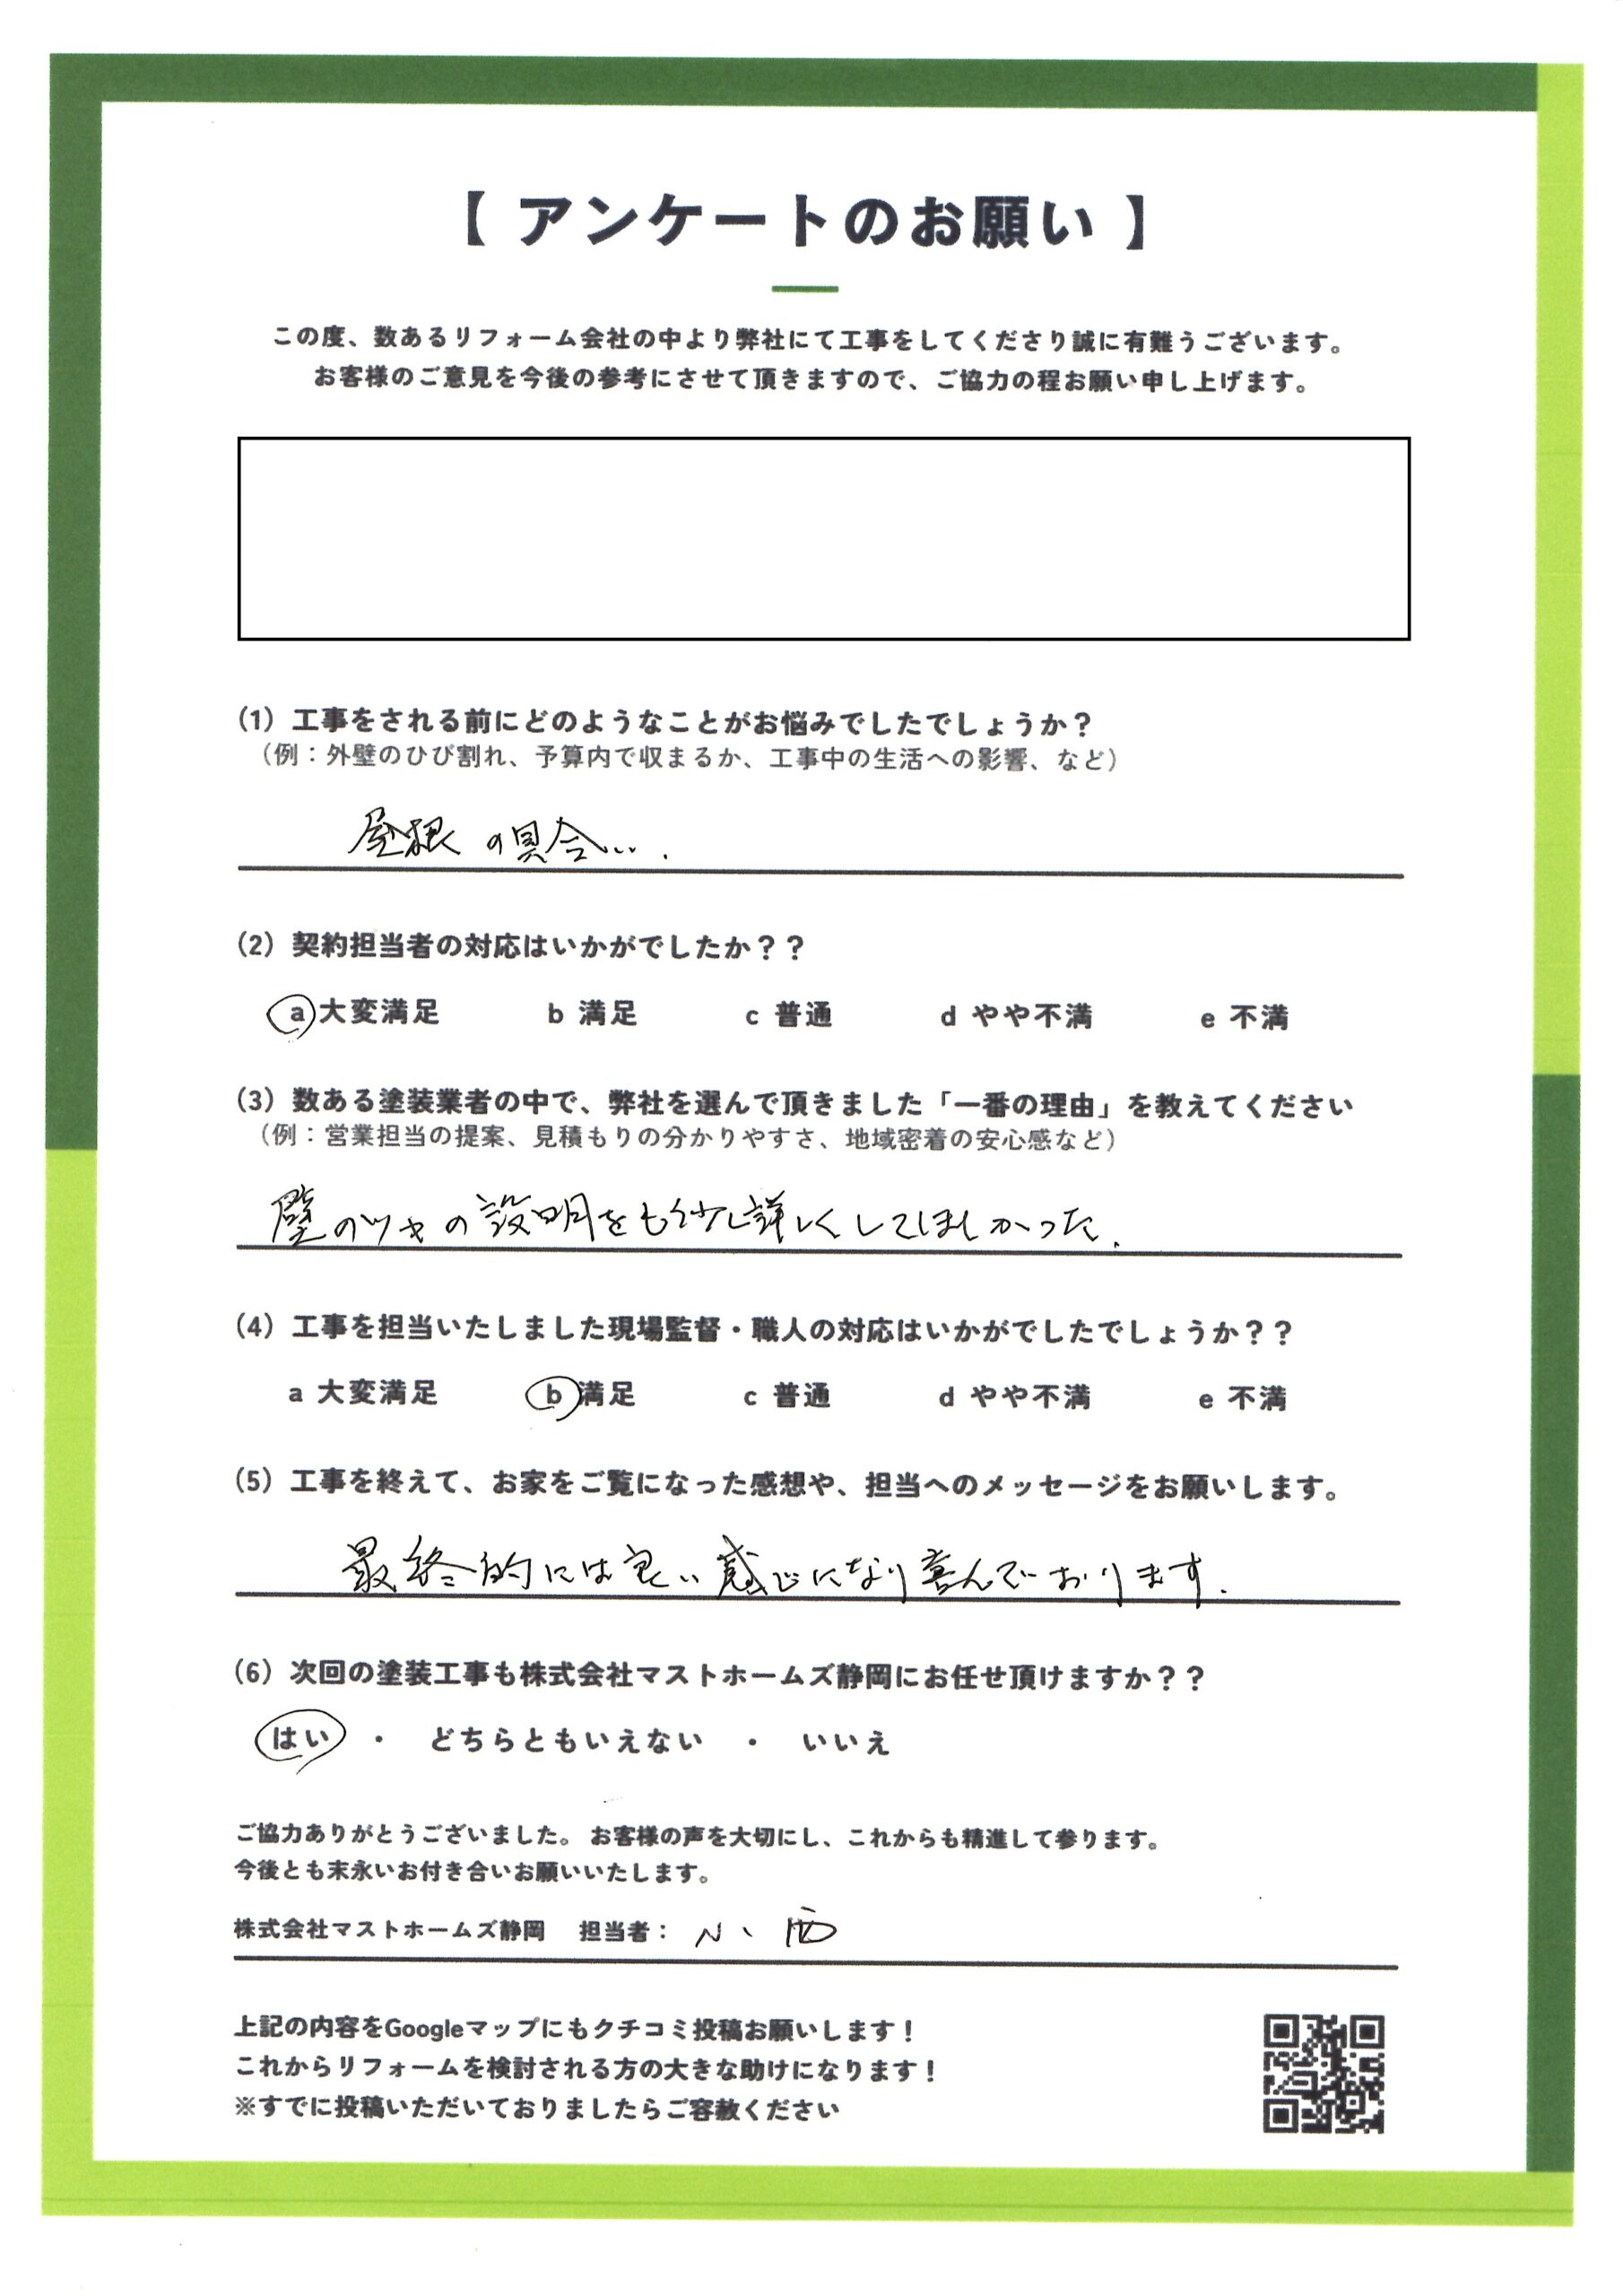 【 アンケートのお願い 】
この度、数あるリフォーム会社の中より弊社にて工事をしてくださり誠に有難うございます。
お客様のご意見を今後の参考にさせて頂きますので、ご協力の程お願い申し上げます。
(1) 工事をされる前にどのようなことがお悩みでしたでしょうか？
（例：外壁のひび割れ、予算内で収まるか、工事中の生活への影響、など）
屋根の具合….
(2) 契約担当者の対応はいかがでしたか？？
a 大変満足 b 満足 c 普通 d やや不満 e 不満
(3) 数ある塗装業者の中で、弊社を選んで頂きました「一番の理由」を教えてください
（例：営業担当の提案、見積もりの分かりやすさ、地域密着の安心感など）
壁のツヤの説明をもう少し詳しくしてほしかった.
(4) 工事を担当いたしました現場監督・職人の対応はいかがでしたでしょうか？？
a 大変満足 b 満足 c 普通 d やや不満 e 不満
(5) 工事を終えて、お家をご覧になった感想や、担当へのメッセージをお願いします。
最終的には良い感じになり喜んでおります.
(6) 次回の塗装工事も株式会社マストホームズ静岡にお任せ頂けますか？？
はい ・ どちらともいえない ・ いいえ
ご協力ありがとうございました。 お客様の声を大切にし、これからも精進して参ります。
今後とも末永いお付き合いお願いいたします。
株式会社マストホームズ静岡 担当者： 小西
上記の内容をGoogleマップにもクチコミ投稿お願いします！
これからリフォームを検討される方の大きな助けになります！
※すでに投稿いただいておりましたらご容赦ください